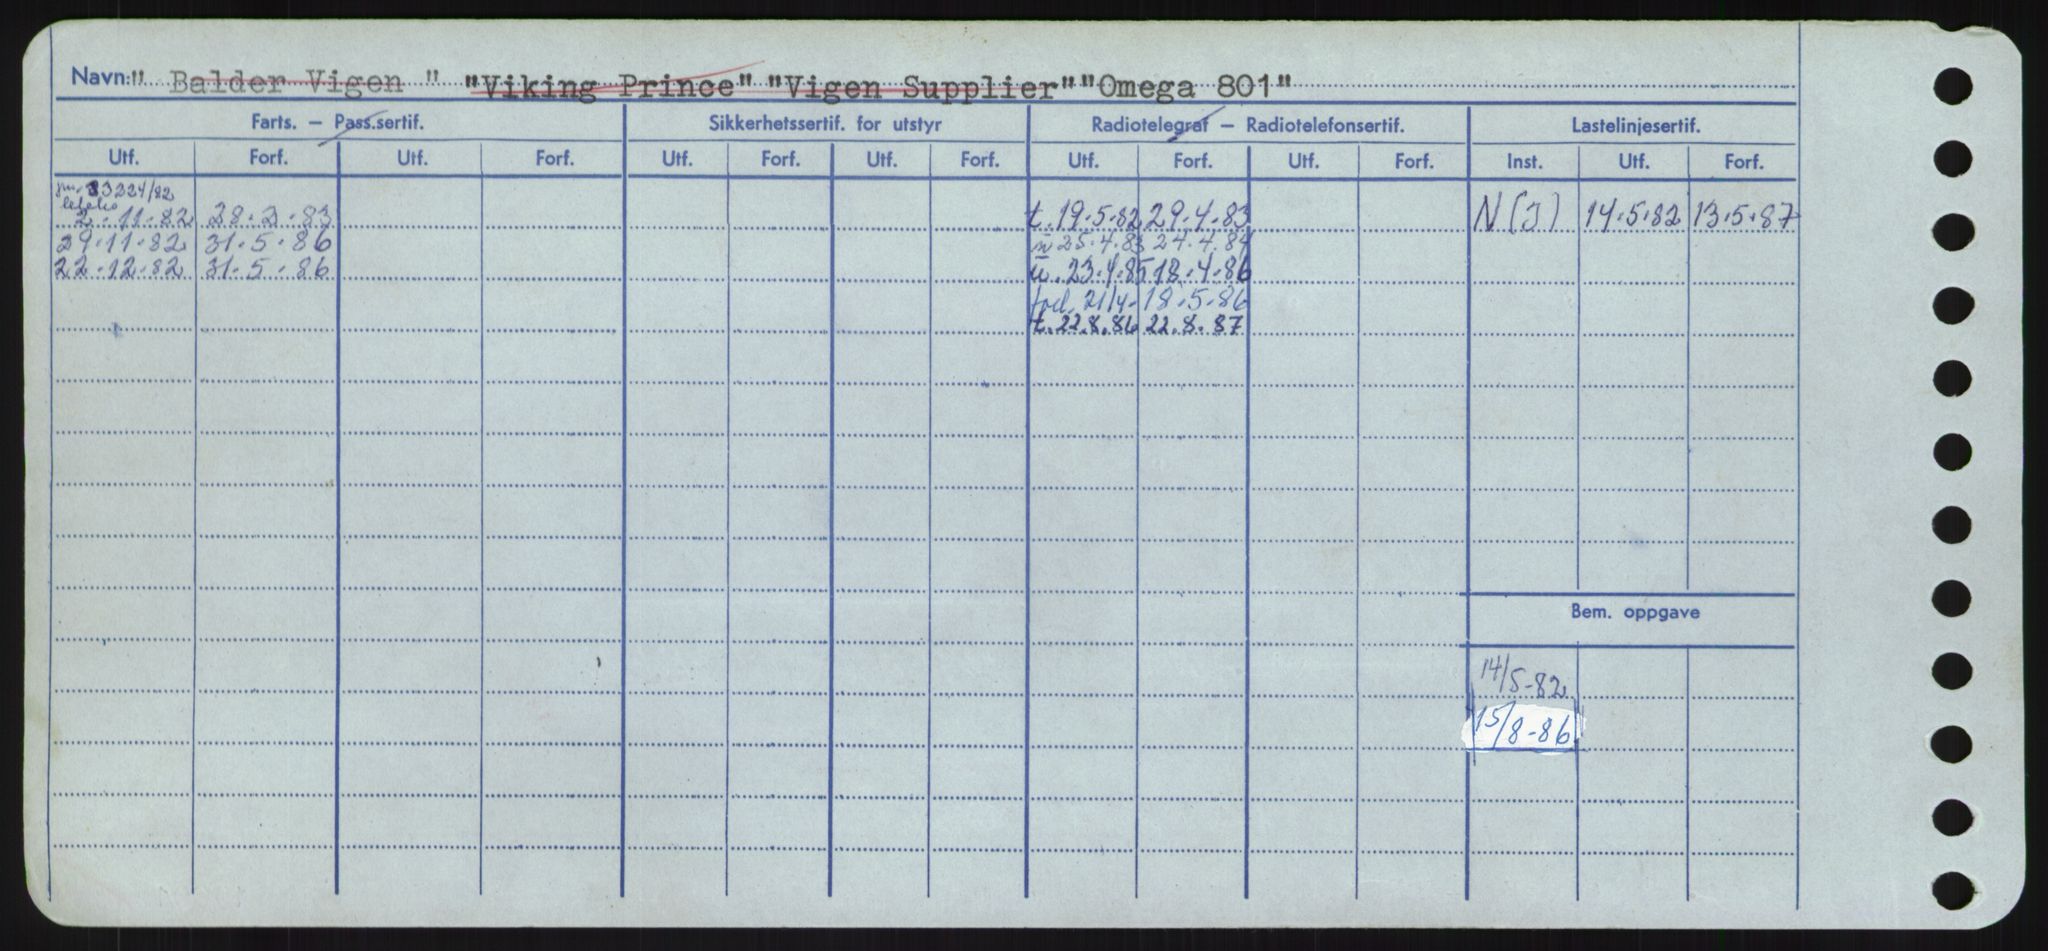 Navn: " Balder Vigen " "Viking Prince" "Vigen Supplier" "Omega 801"
Farts. — Pass.sertif. Sikkerhetssertif. for utstyr Radiotelegraf — Radiotelefonsertif. Lastelinjesertif.
Utf. Forf. Utf. Forf. Utf. Forf. Utf. Forf. Utf. Forf. Utf. Forf. Inst. Utf. Forf.
33224/82
2.11.82 28.2.83 t. 19.5.82 29.4.83 N(I) 14.5.82 13.5.87
29.11.82 31.5.86 25.4.83 24.4.84
22.12.82 31.5.86 u. 23.4.85 18.4.86
21/4- 18.5.86
t. 22.8.86 22.8.87
Bem. oppgave
14/5-82
15/8-86